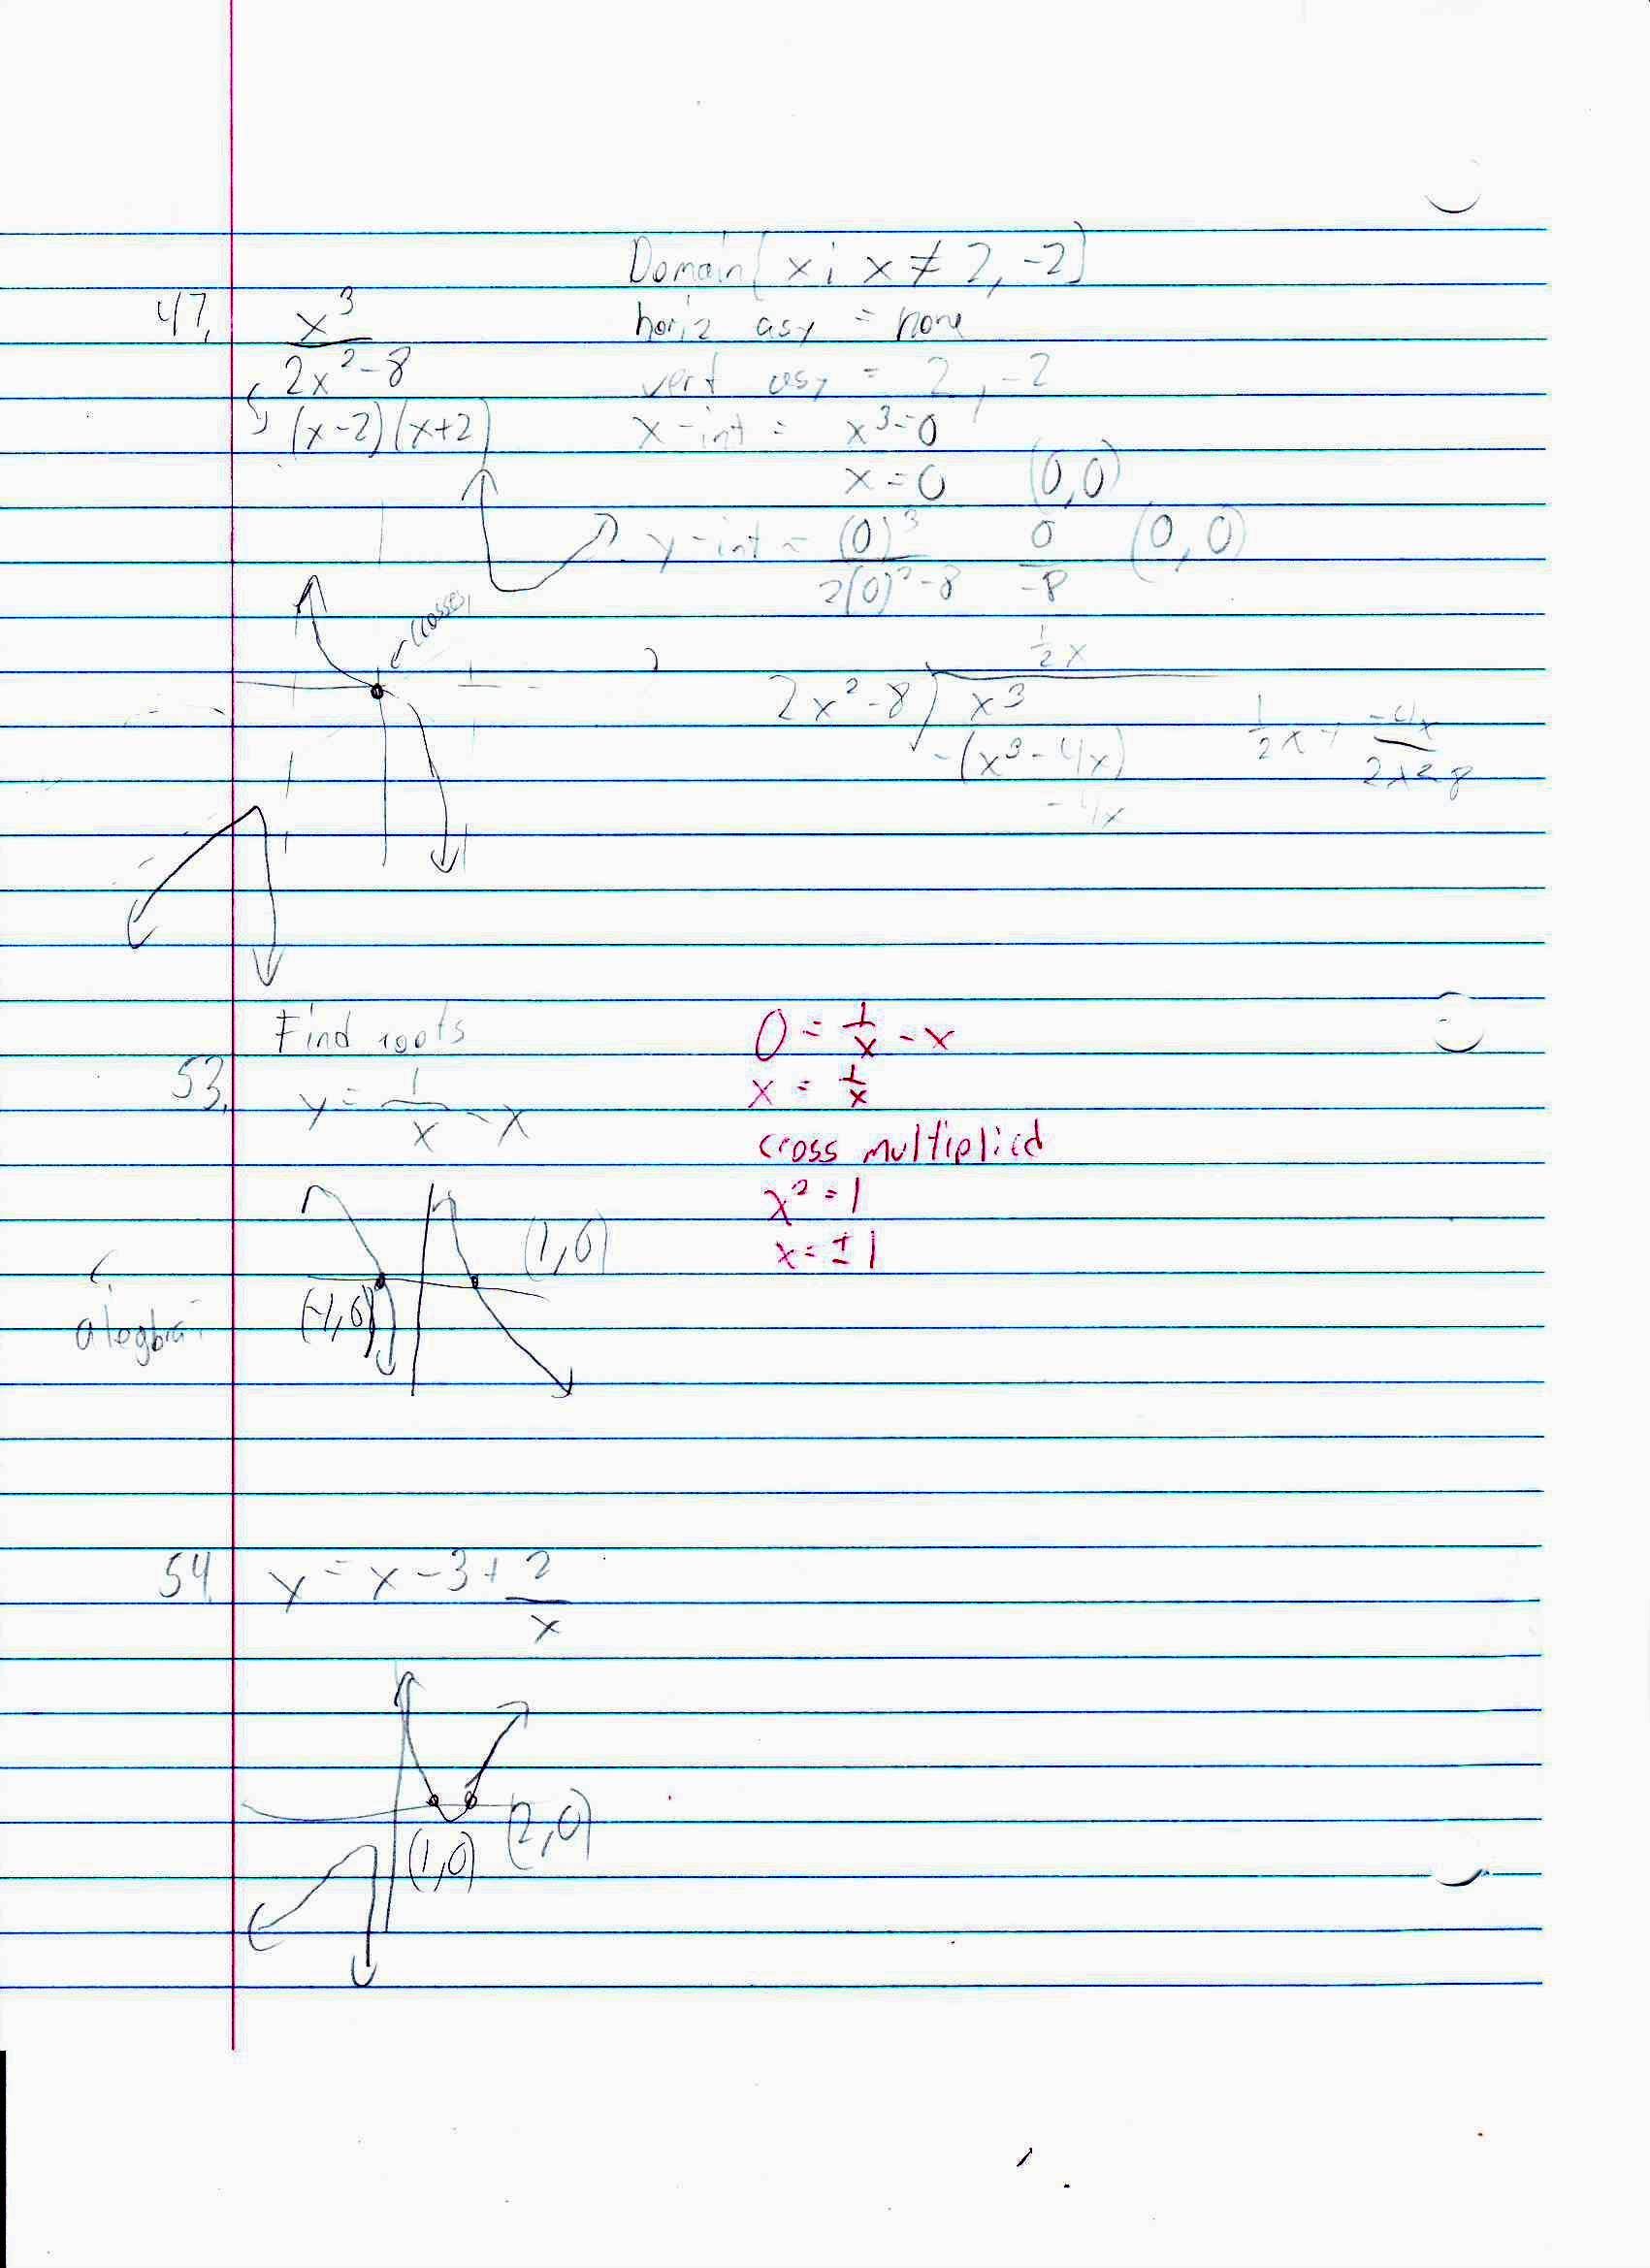 Domain{x: x ≠ 2, -2}
47. x^3 / 2x^2-8
horiz asy = none
vert asy = 2, -2
(x-2)(x+2)
x-int = x^3=0
x=0 (0,0)
y-int = (0)^3 / 2(0)^2-8 0/-8 (0,0)
crosses
1/2 x
2x^2-8 x^3
-(x^3-4x)
-4x
1/2 x + -4x / 2x2-8
Find roots
53. y = 1/x - x
0 = 1/x - x
x = 1/x
cross multiplied
x^2 = 1
x = ±1
(1,0)
(-1,0)
alegbra
54. y = x-3+ 2/x
(2,0)
(1,0)